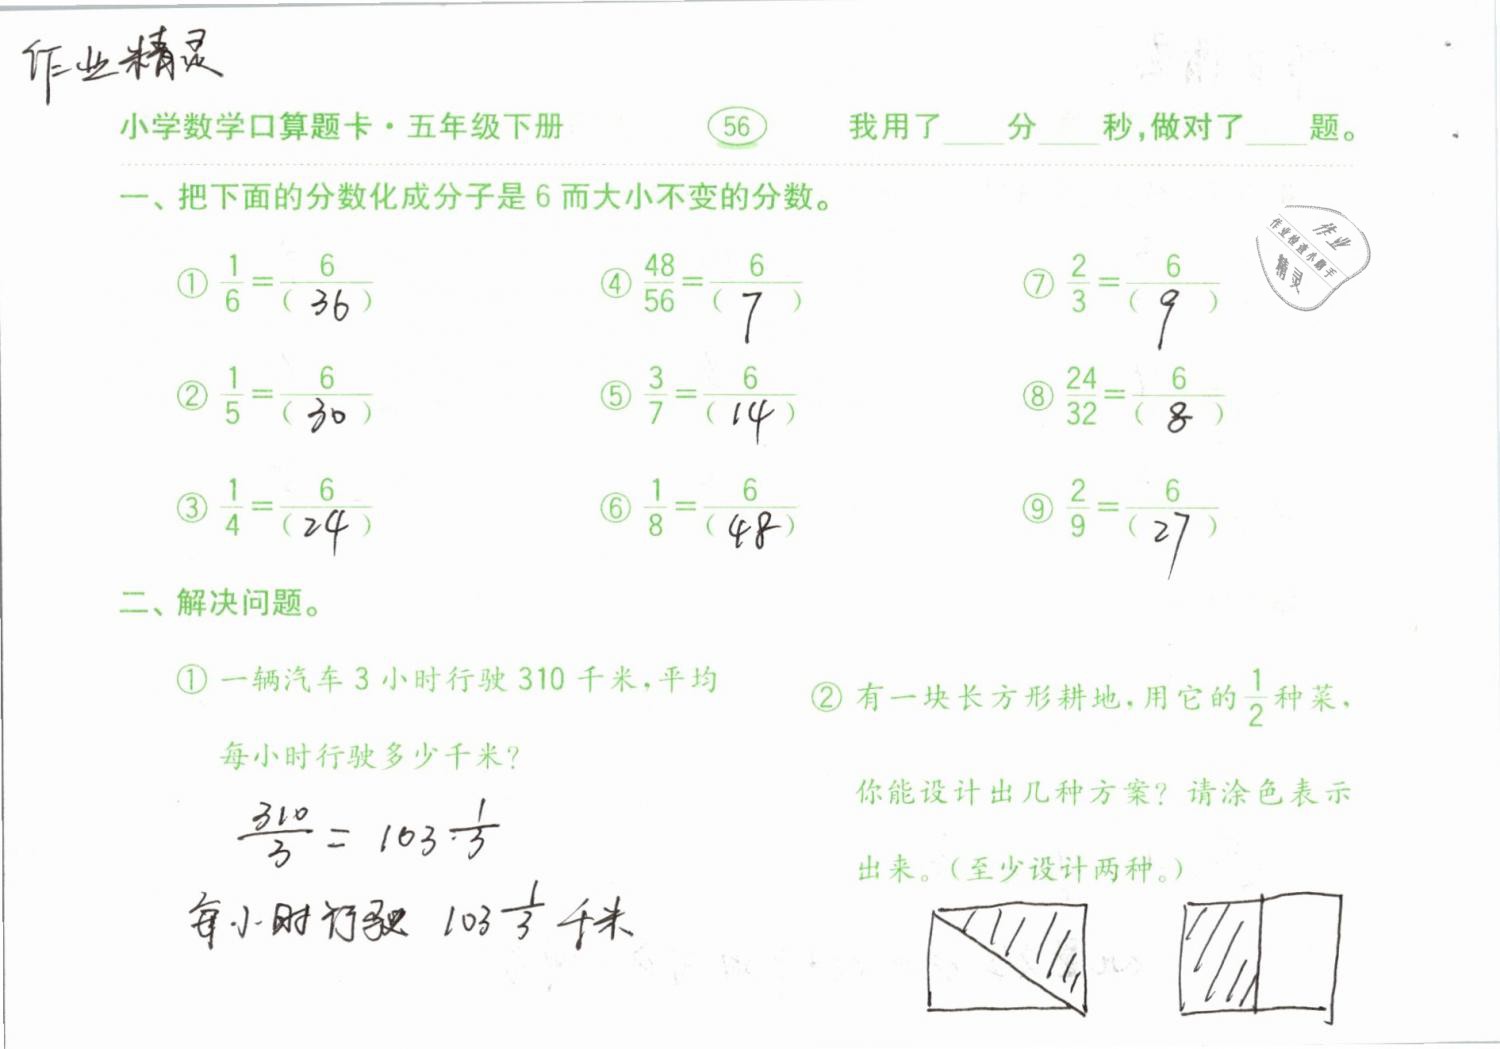 作业精灵
小学数学口算题卡·五年级下册 56 我用了____分____秒,做对了____题。
一、把下面的分数化成分子是6而大小不变的分数。
作业
作业检查小助手
精灵
① 1/6=6/(36) ④ 48/56=6/(7) ⑦ 2/3=6/(9)
② 1/5=6/(30) ⑤ 3/7=6/(14) ⑧ 24/32=6/(8)
③ 1/4=6/(24) ⑥ 1/8=6/(48) ⑨ 2/9=6/(27)
二、解决问题。
① 一辆汽车3小时行驶310千米,平均
每小时行驶多少千米?
310/3 = 103 1/3
每小时行驶 103 1/3 千米
② 有一块长方形耕地,用它的1/2种菜,
你能设计出几种方案? 请涂色表示
出来。(至少设计两种。)